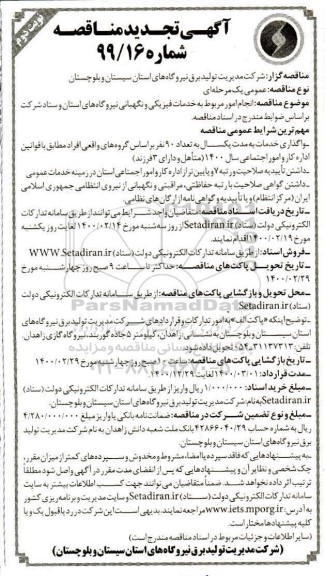 نوبت دوم
آگهی تجدید مناقصه
شماره ۹۹/۱۶
مناقصه گزار: شرکت مدیریت تولید برق نیروگاه های استان سیستان و بلوچستان
نوع مناقصه: عمومی یک مرحله ای
موضوع مناقصه: انجام امور مربوط به خدمات فیزیکی و نگهبانی نیروگاه های استان و ستاد شرکت
براساس ضوابط مندرج در اسناد مناقصه
مهم ترین شرایط عمومی مناقصه
ـ واگذاری خدمات به مدت یکسال به تعداد ۹۰ نفر براساس گروه های واقعی افراد مطابق با قوانین
اداره کار و امور اجتماعی سال ۱۴۰۰ (متأهل و دارای ۳ فرزند)
ـ داشتن تأییدیه صلاحیت رتبه ۷ و پایین تر از اداره کار و امور اجتماعی استان در زمینه خدمات عمومی
ـ داشتن گواهی صلاحیت با رتبه حفاظتی، مراقبتی و نگهبانی از نیروی انتظامی جمهوری اسلامی
ایران (مرکز انتظام) و یا تأییدیه و گواهی نامه از ارگان های نظامی
ـ تاریخ دریافت اسناد مناقصه: متقاضیان واجد شرایط می توانند از طریق سامانه تدارکات
الکترونیکی دولت (ستاد) Setadiran.ir از روز سه شنبه مورخ ۱۴۰۰/۰۲/۱۴ لغایت روز یکشنبه
مورخ ۱۴۰۰/۰۲/۱۹ اقدام نمایند.
ـ فروش اسناد: از طریق سامانه تدارکات الکترونیکی دولت (ستاد) WWW.Setadiran.ir
ـ تاریخ تحویل پاکت های مناقصه: حداکثر تا ساعت ۹ صبح روز چهارشنبه مورخ
۱۴۰۰/۰۲/۲۹
ـ محل تحویل و بازگشایی پاکت های مناقصه: از طریق سامانه تدارکات الکترونیکی دولت
(ستاد) Setadiran.ir
توضیح اینکه «پاکت الف» به امور تدارکات و قراردادهای شرکت مدیریت تولید برق نیروگاه های
استان سیستان و بلوچستان به نشانی: زاهدان، کیلومتر ۵ جاده گوربند، نیروگاه گازی زاهدان
تلفن: ۰۵۴-۳۱۱۳۷۳۱۳ تحویل داده شود.
ـ تاریخ بازگشایی پاکت های مناقصه: ساعت ۱۰ صبح روز چهارشنبه مورخ ۱۴۰۰/۰۲/۲۹
مدت قرارداد: ۱۴۰۰/۰۳/۰۱ لغایت ۱۴۰۰/۱۲/۲۹
ـ مبلغ خرید اسناد: ۱/۰۰۰/۰۰۰ ریال واریز از طریق سامانه تدارکات الکترونیکی دولت (ستاد)
Setadiran.ir به نام شرکت مدیریت تولید برق نیروگاه های استان سیستان و بلوچستان
ـ مبلغ و نوع تضمین شرکت در مناقصه: ضمانت نامه بانکی یا واریز مبلغ ۴/۲۸۰/۰۰۰/۰۰۰
ریال به شماره حساب ۴۲۸۶۶۰۴۰۲۹ بانک ملت شعبه دانش زاهدان به نام شرکت مدیریت تولید
برق نیروگاه های استان سیستان و بلوچستان
ـ به پیشنهادهایی که فاقد سپرده یا امضاء مشروط و مخدوش و سپرده های کمتر از میزان مقرر،
چک شخصی و نظایر آن و پیشنهادهایی که پس از انقضای مدت مقرر در آگهی واصل شود مطلقا
ترتیب اثر داده نخواهد شد. ضمنا متقاضیان می توانند جهت کسب اطلاعات بیشتر به سایت
سامانه تدارکات الکترونیکی دولت (ستاد) Setadiran.ir و سایت مدیریت و برنامه ریزی کشور
به آدرس www.iets.mporg.ir مراجعه نمایند. بدیهی است این شرکت در رد یا قبول یک و یا
کلیه پیشنهادها مختار است.
(سایر اطلاعات و جزئیات مربوط در اسناد مناقصه مندرج است)
(شرکت مدیریت تولید برق نیروگاه های استان سیستان و بلوچستان)